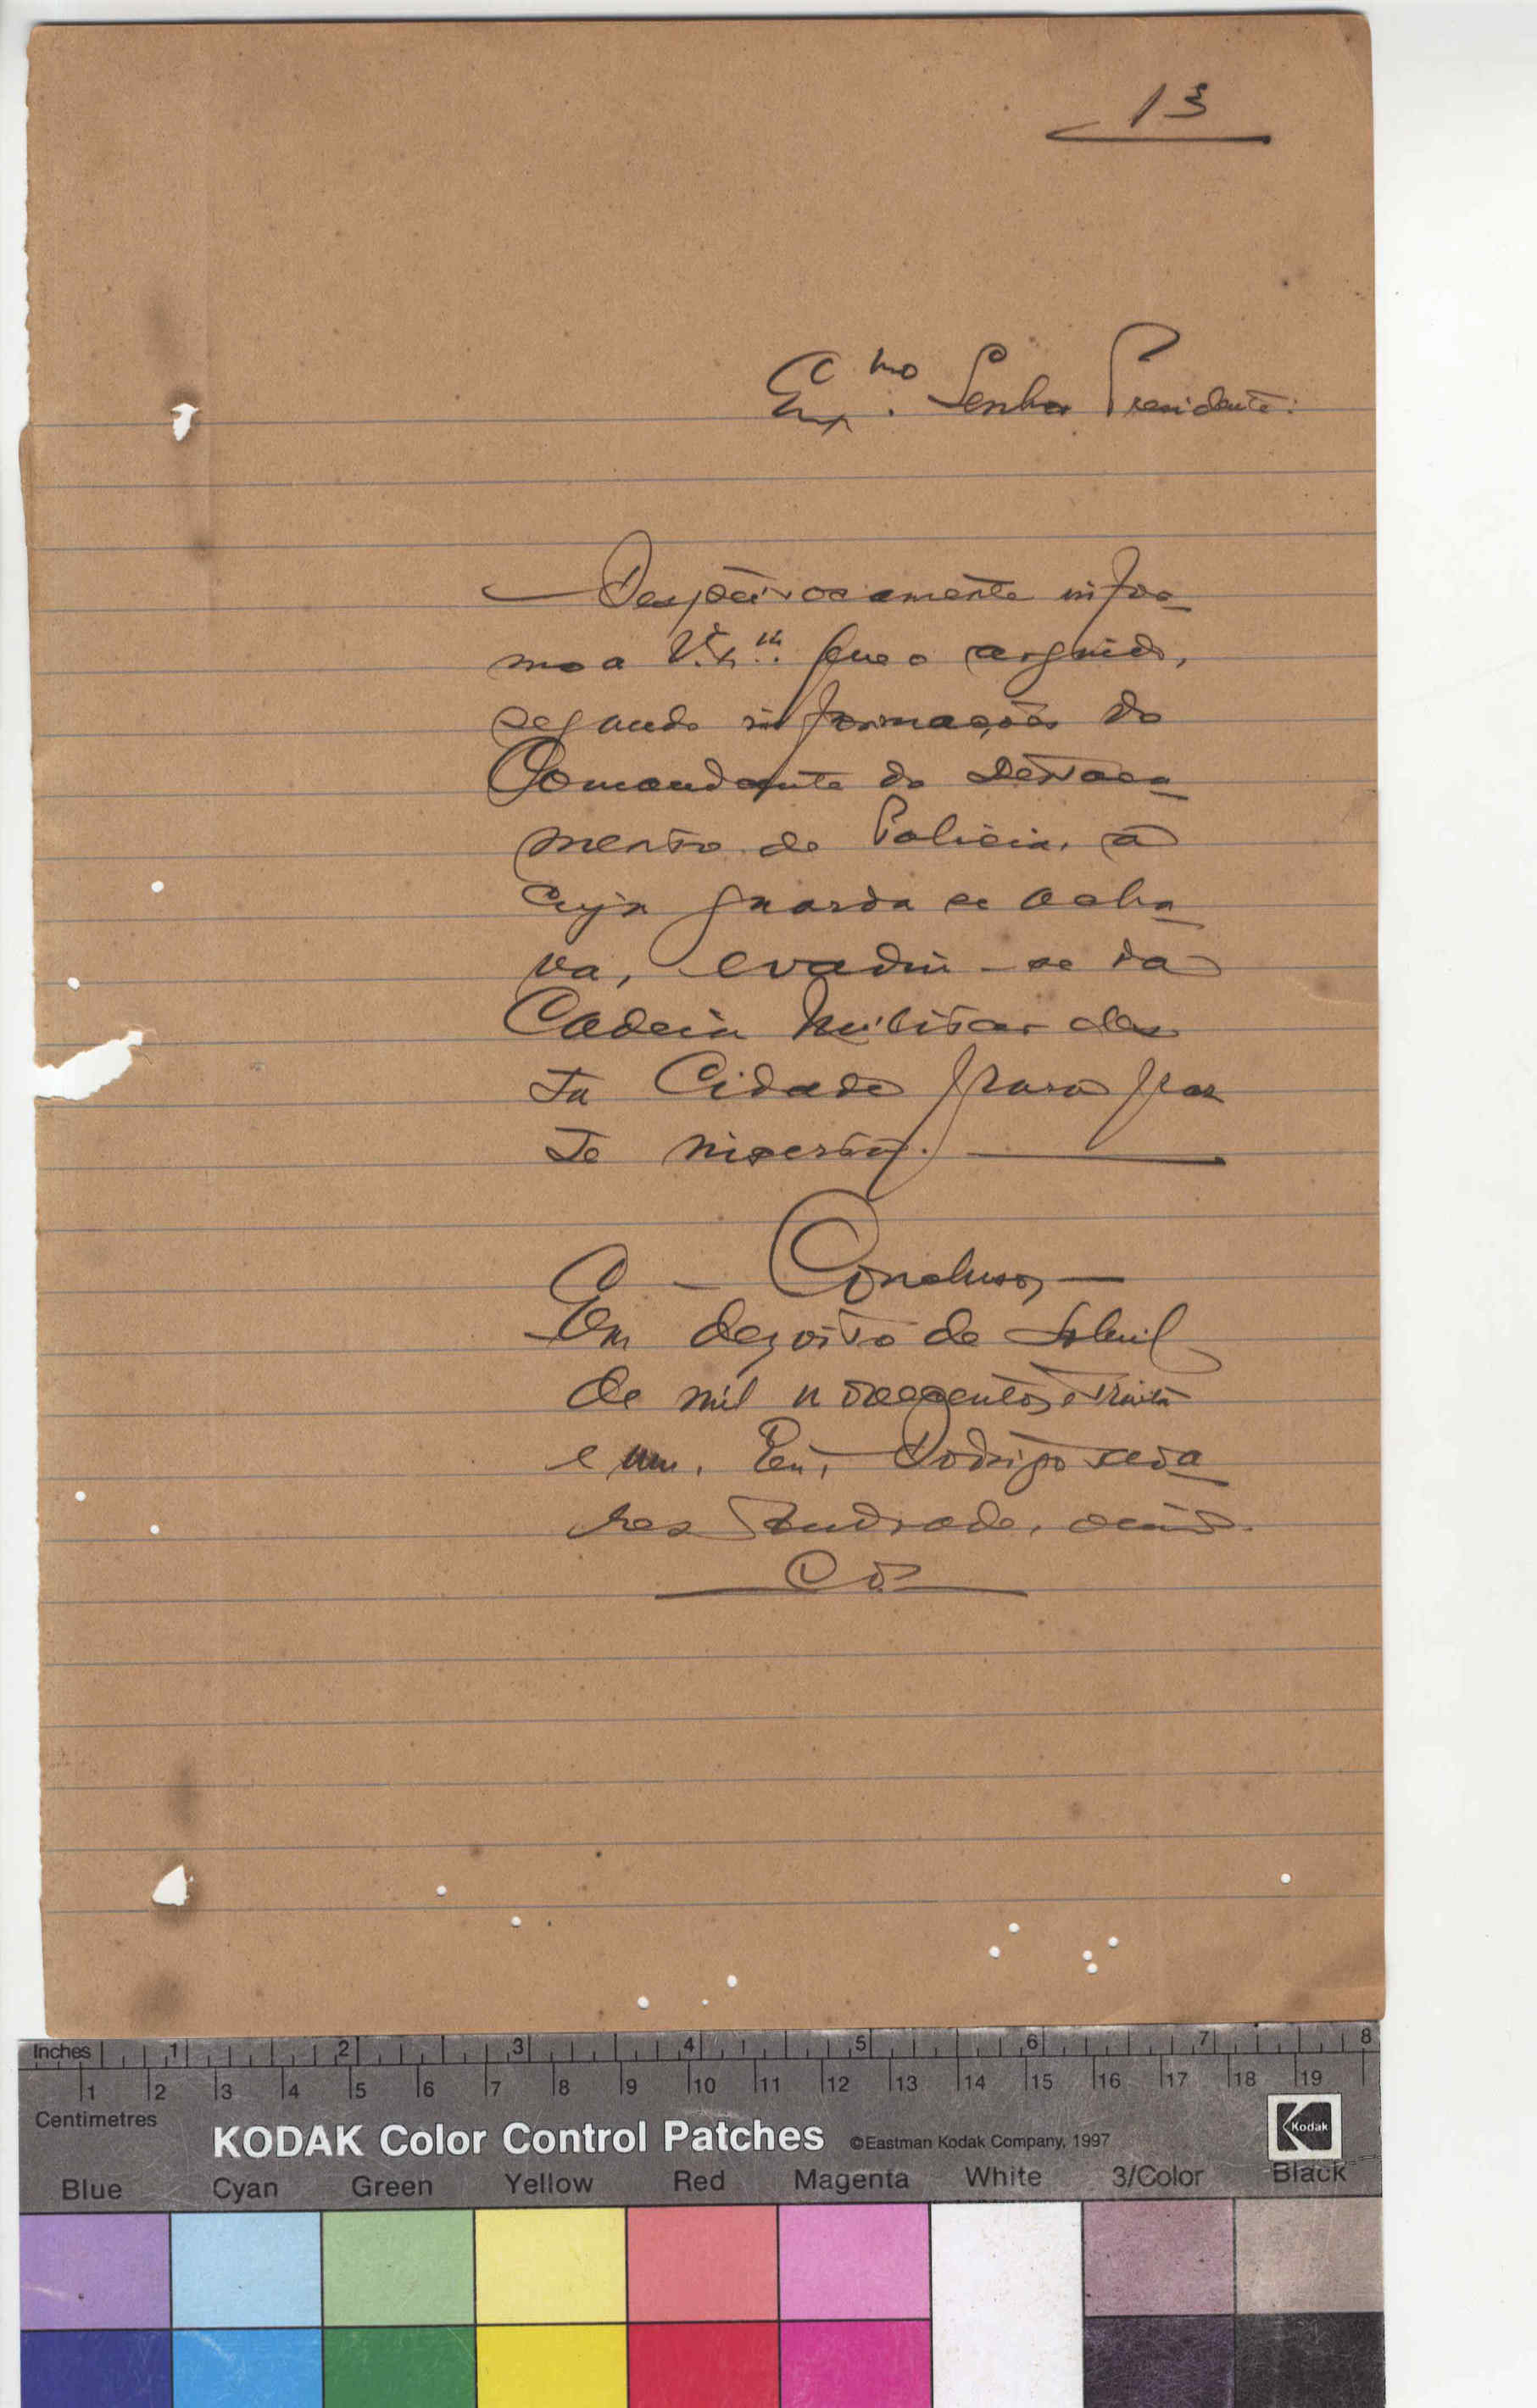 13
Ex.mo Senhor Presidente:
Respeitosamente infor-
mo a V. Ex.cia que o arguido,
segundo informações do
Comandante do Destaca-
mento de Policia, a
cuja guarda se acha-
va, evadiu-se da
Cadeia Militar des
ta Cidade para par
te incerta.
— Conclusos —
Em dezoito de Abril
de mil novecentos e trinta
e um. Eu, Rodrigo
res Andrade,
Inches 1 2 3 4 5 6 7 8
1 2 3 4 5 6 7 8 9 10 11 12 13 14 15 16 17 18 19
Centimetres
KODAK Color Control Patches ©Eastman Kodak Company, 1997 Kodak
Blue Cyan Green Yellow Red Magenta White 3/Color Black